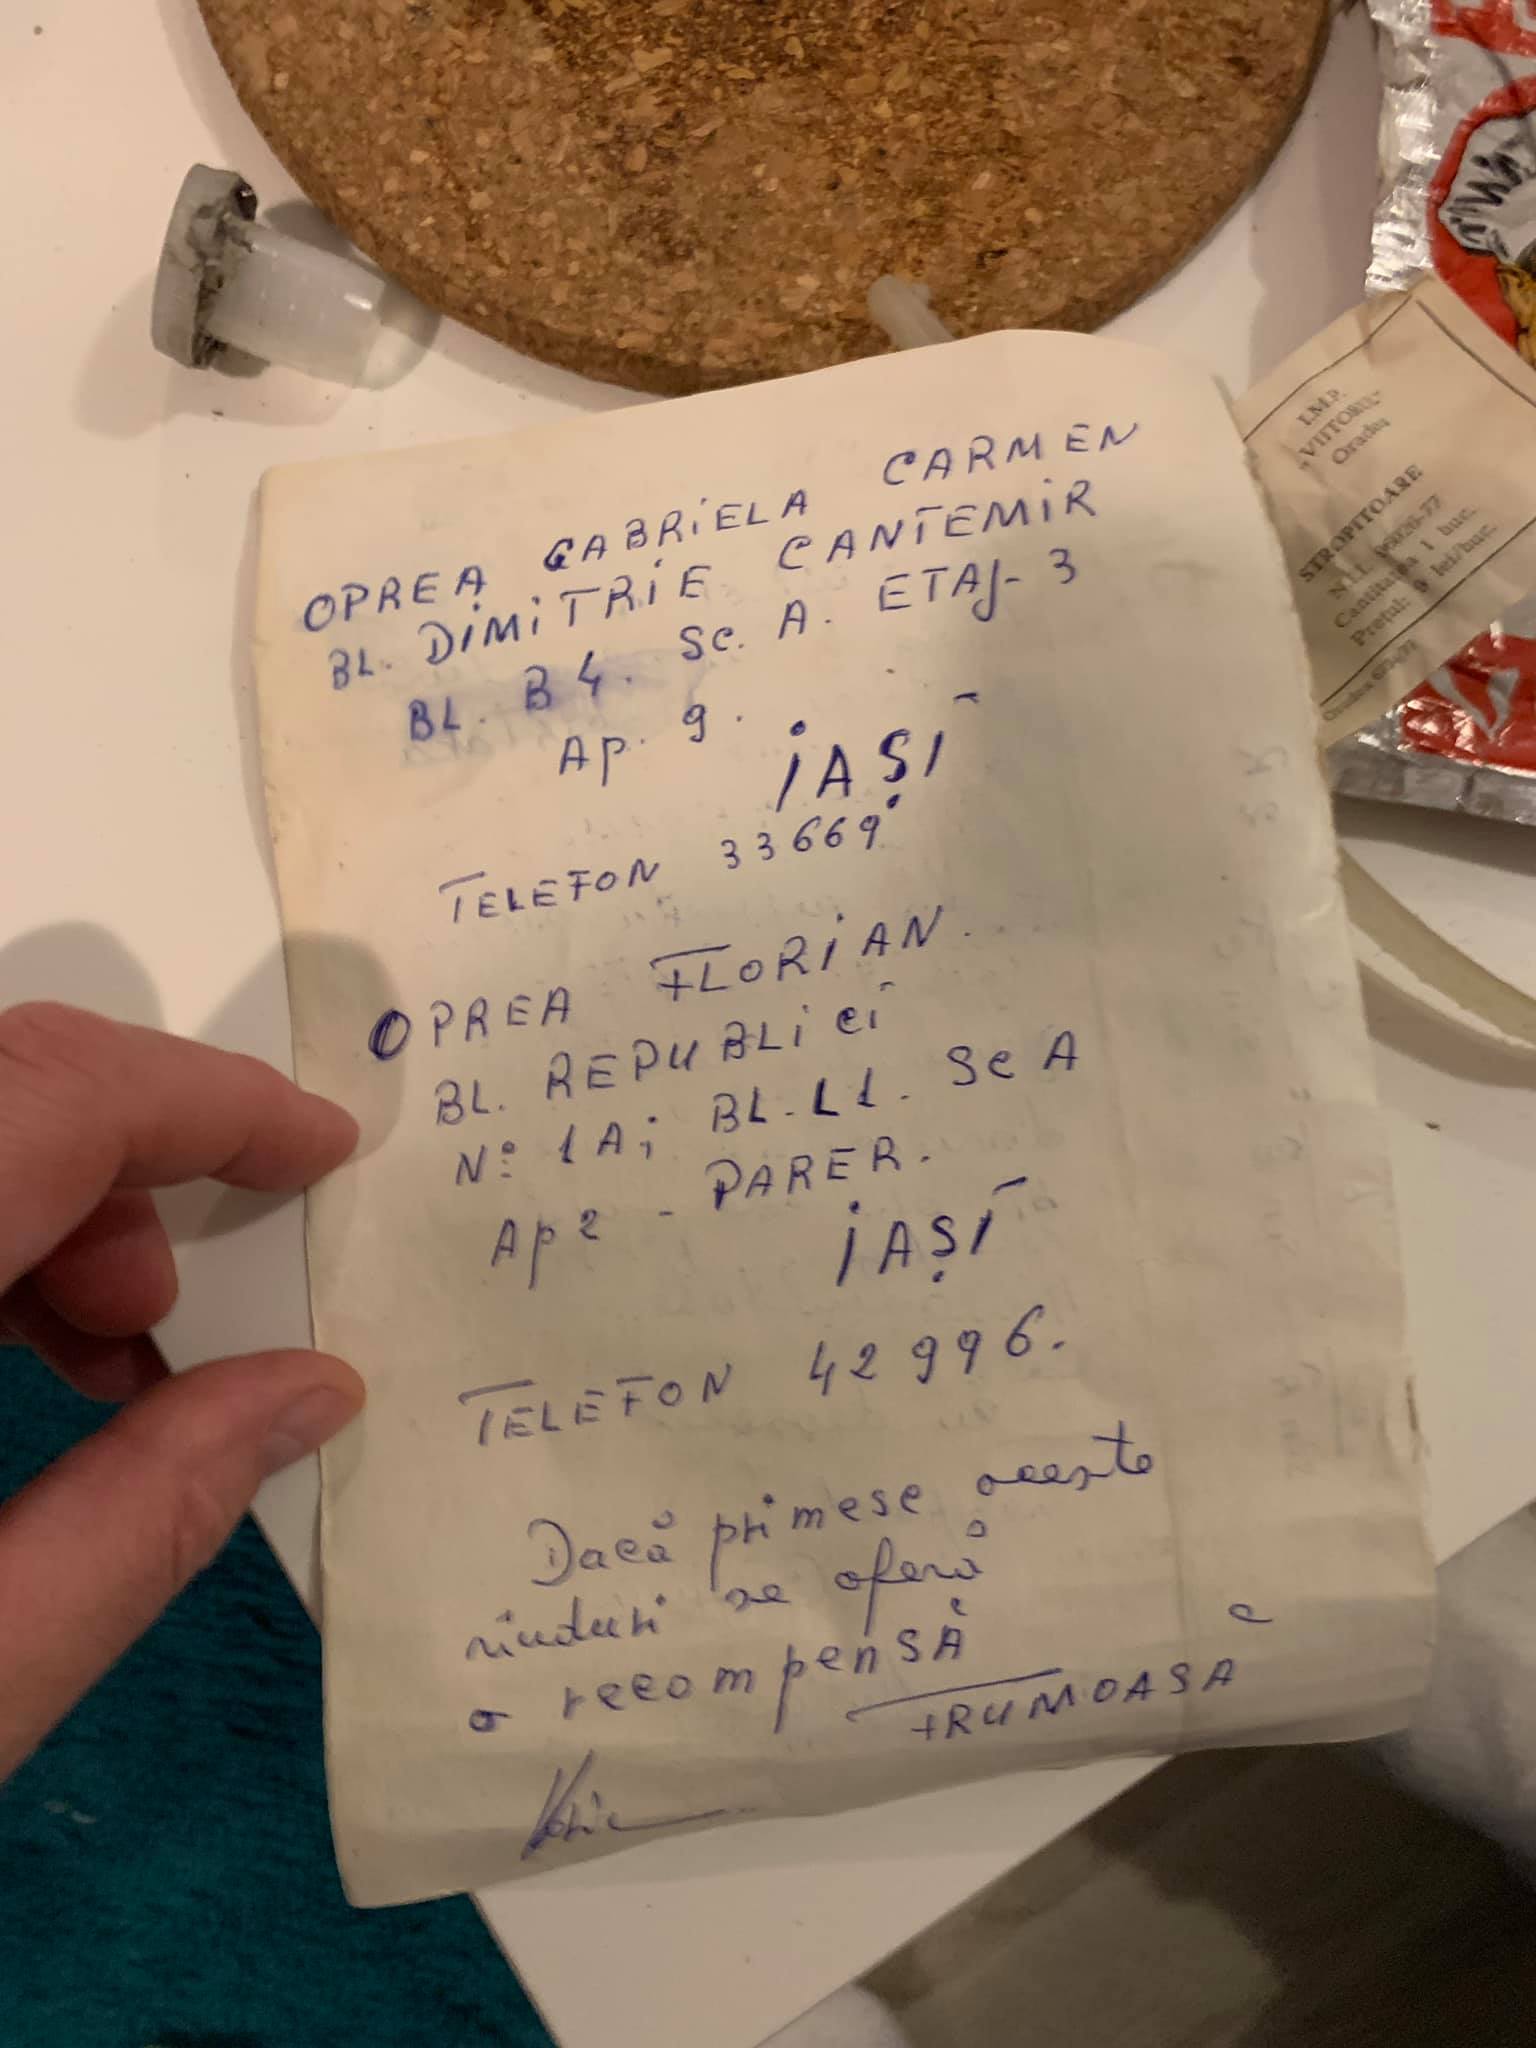 OPREA GABRIELA CARMEN
BL. DIMITRIE CANTEMIR
BL. B4. SC. A. ETAJ- 3
AP. 9.
IAȘI
TELEFON 33669
OPREA FLORIAN.
BL. REPUBLICI
No: 1A; BL. L1. SC A
Ap 2 - PARER.
IAȘI
TELEFON 42996.
Dacă primesc aceste
rînduri se oferă
o recompensĂ
FRUMOASĂ
I.M.P.
„VIITORUL"
Oradea
STROPITOARE
Cantitatea 1 buc.
Prețul: 9 lei/buc.